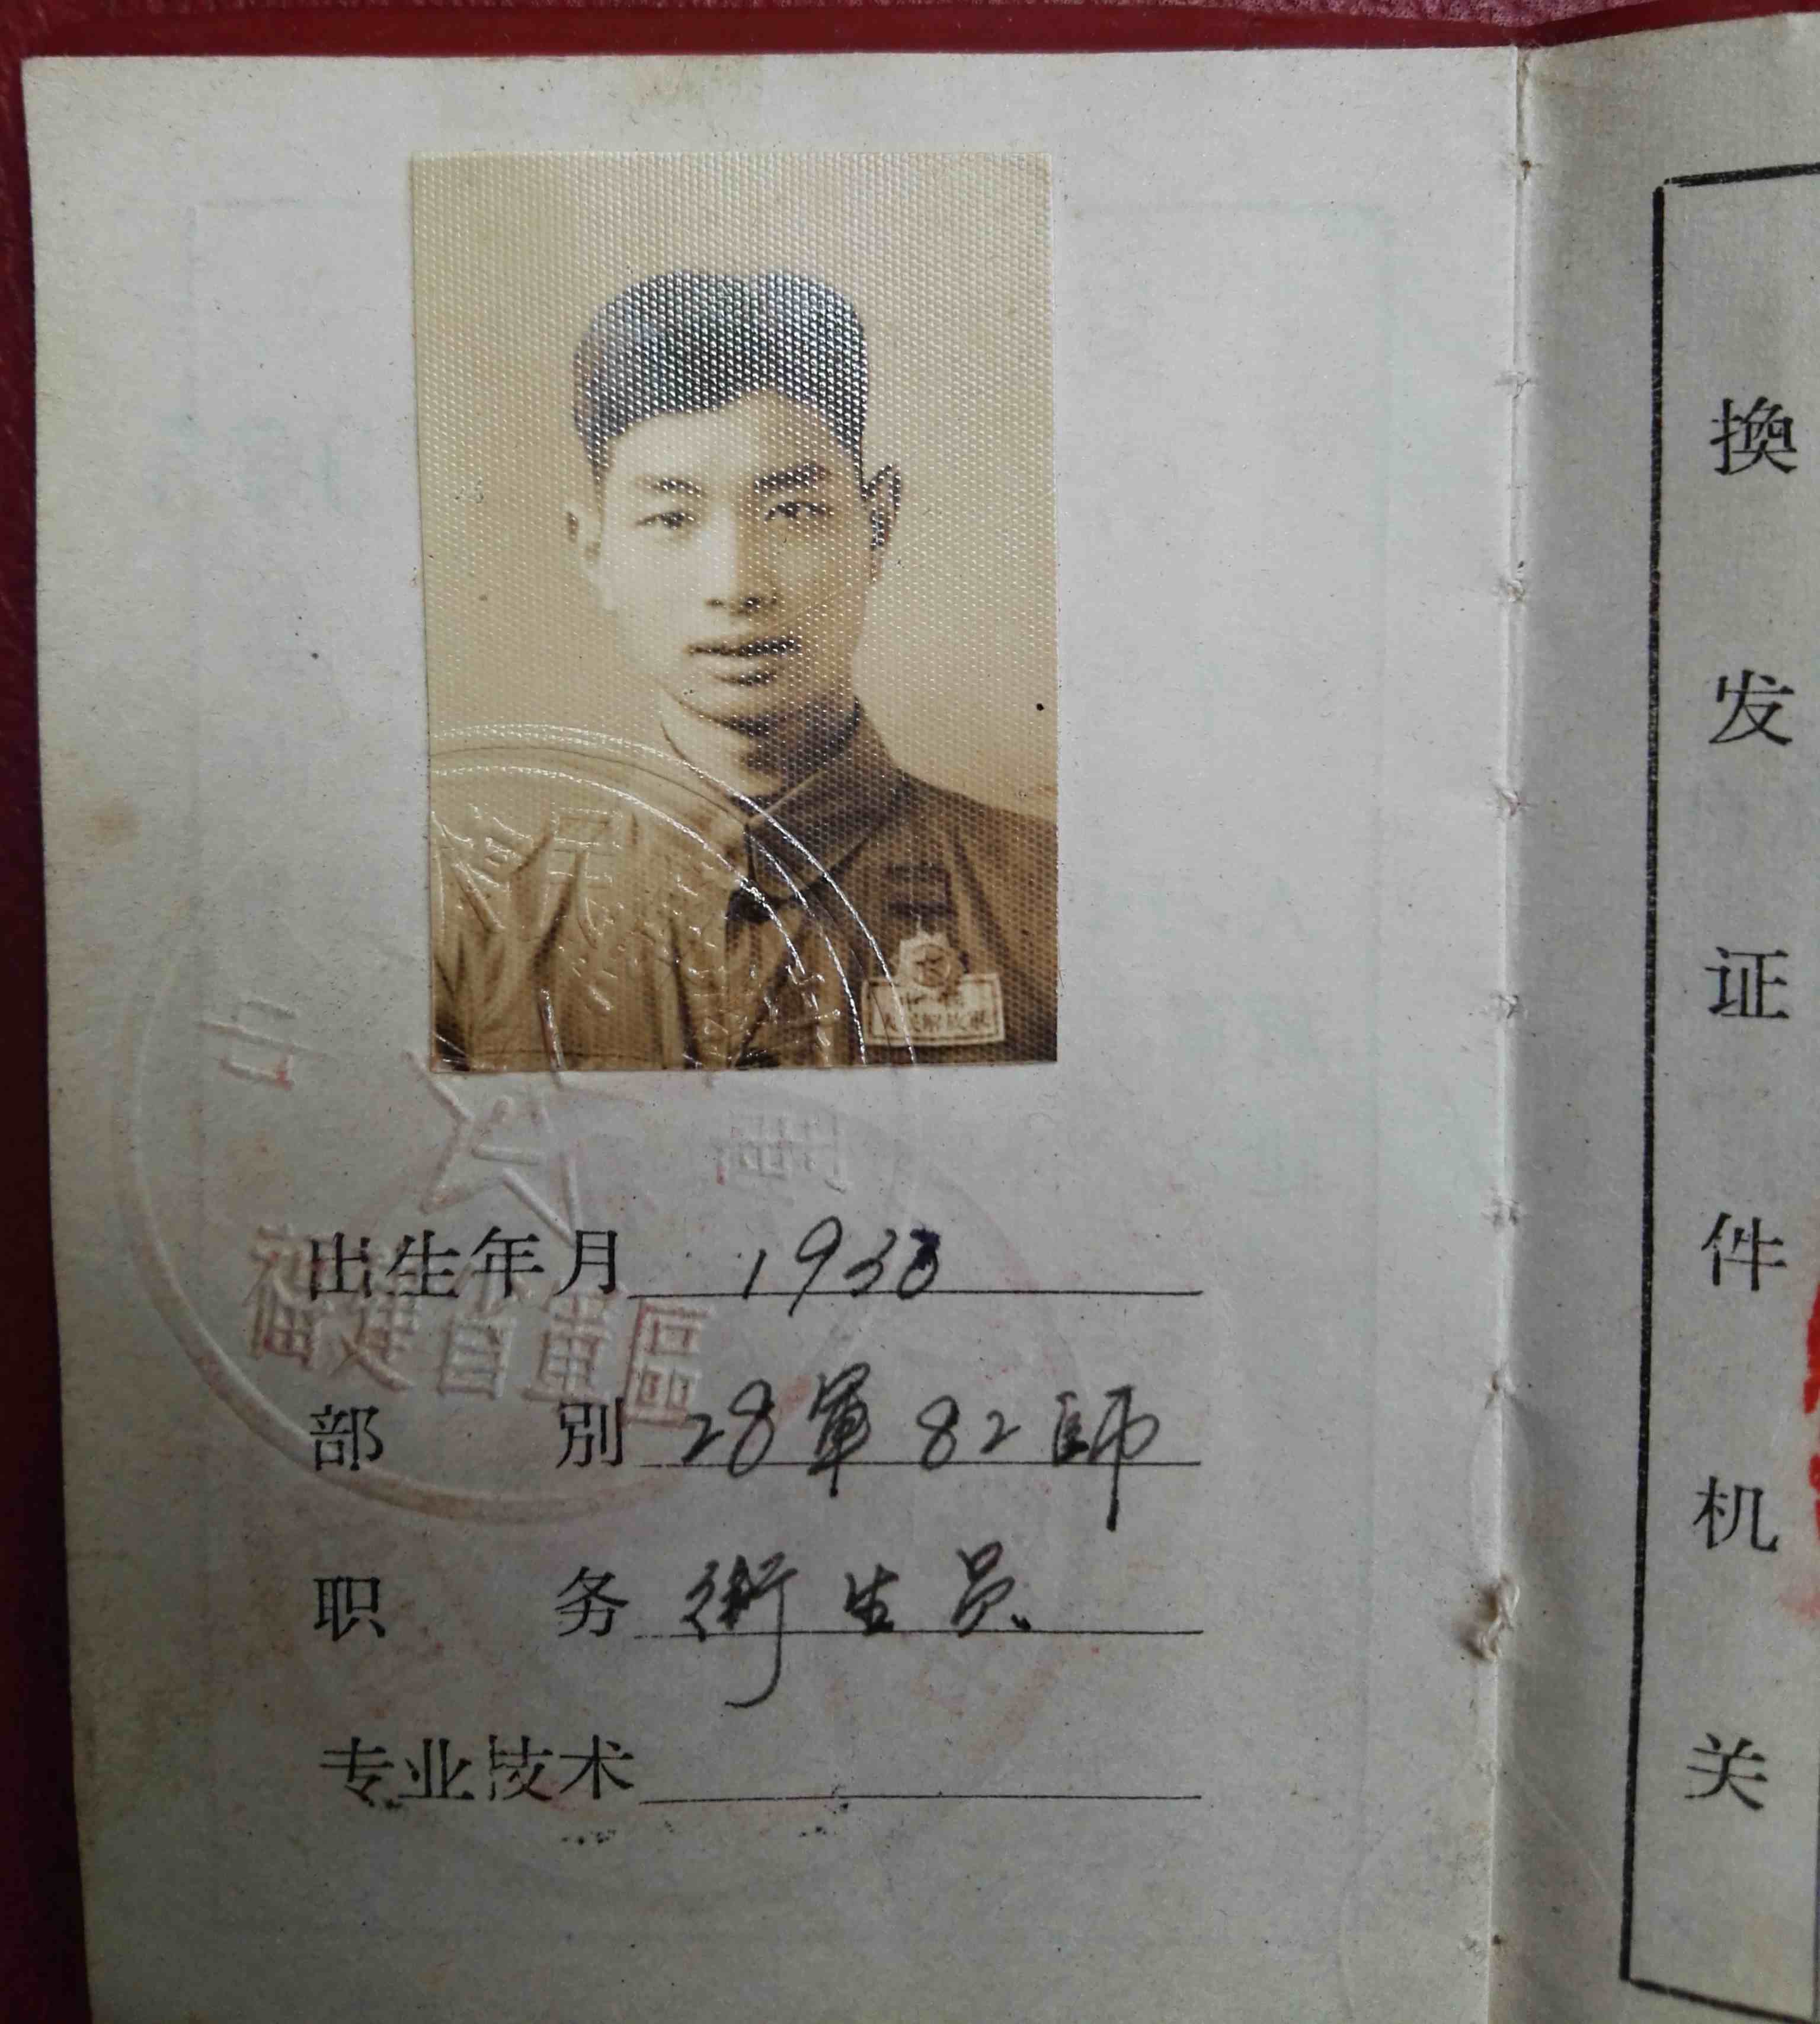 人民解放军
福建省軍區
出生年月 1933
部别 28軍82師
职务 衛生员
专业技术
换发证件机关